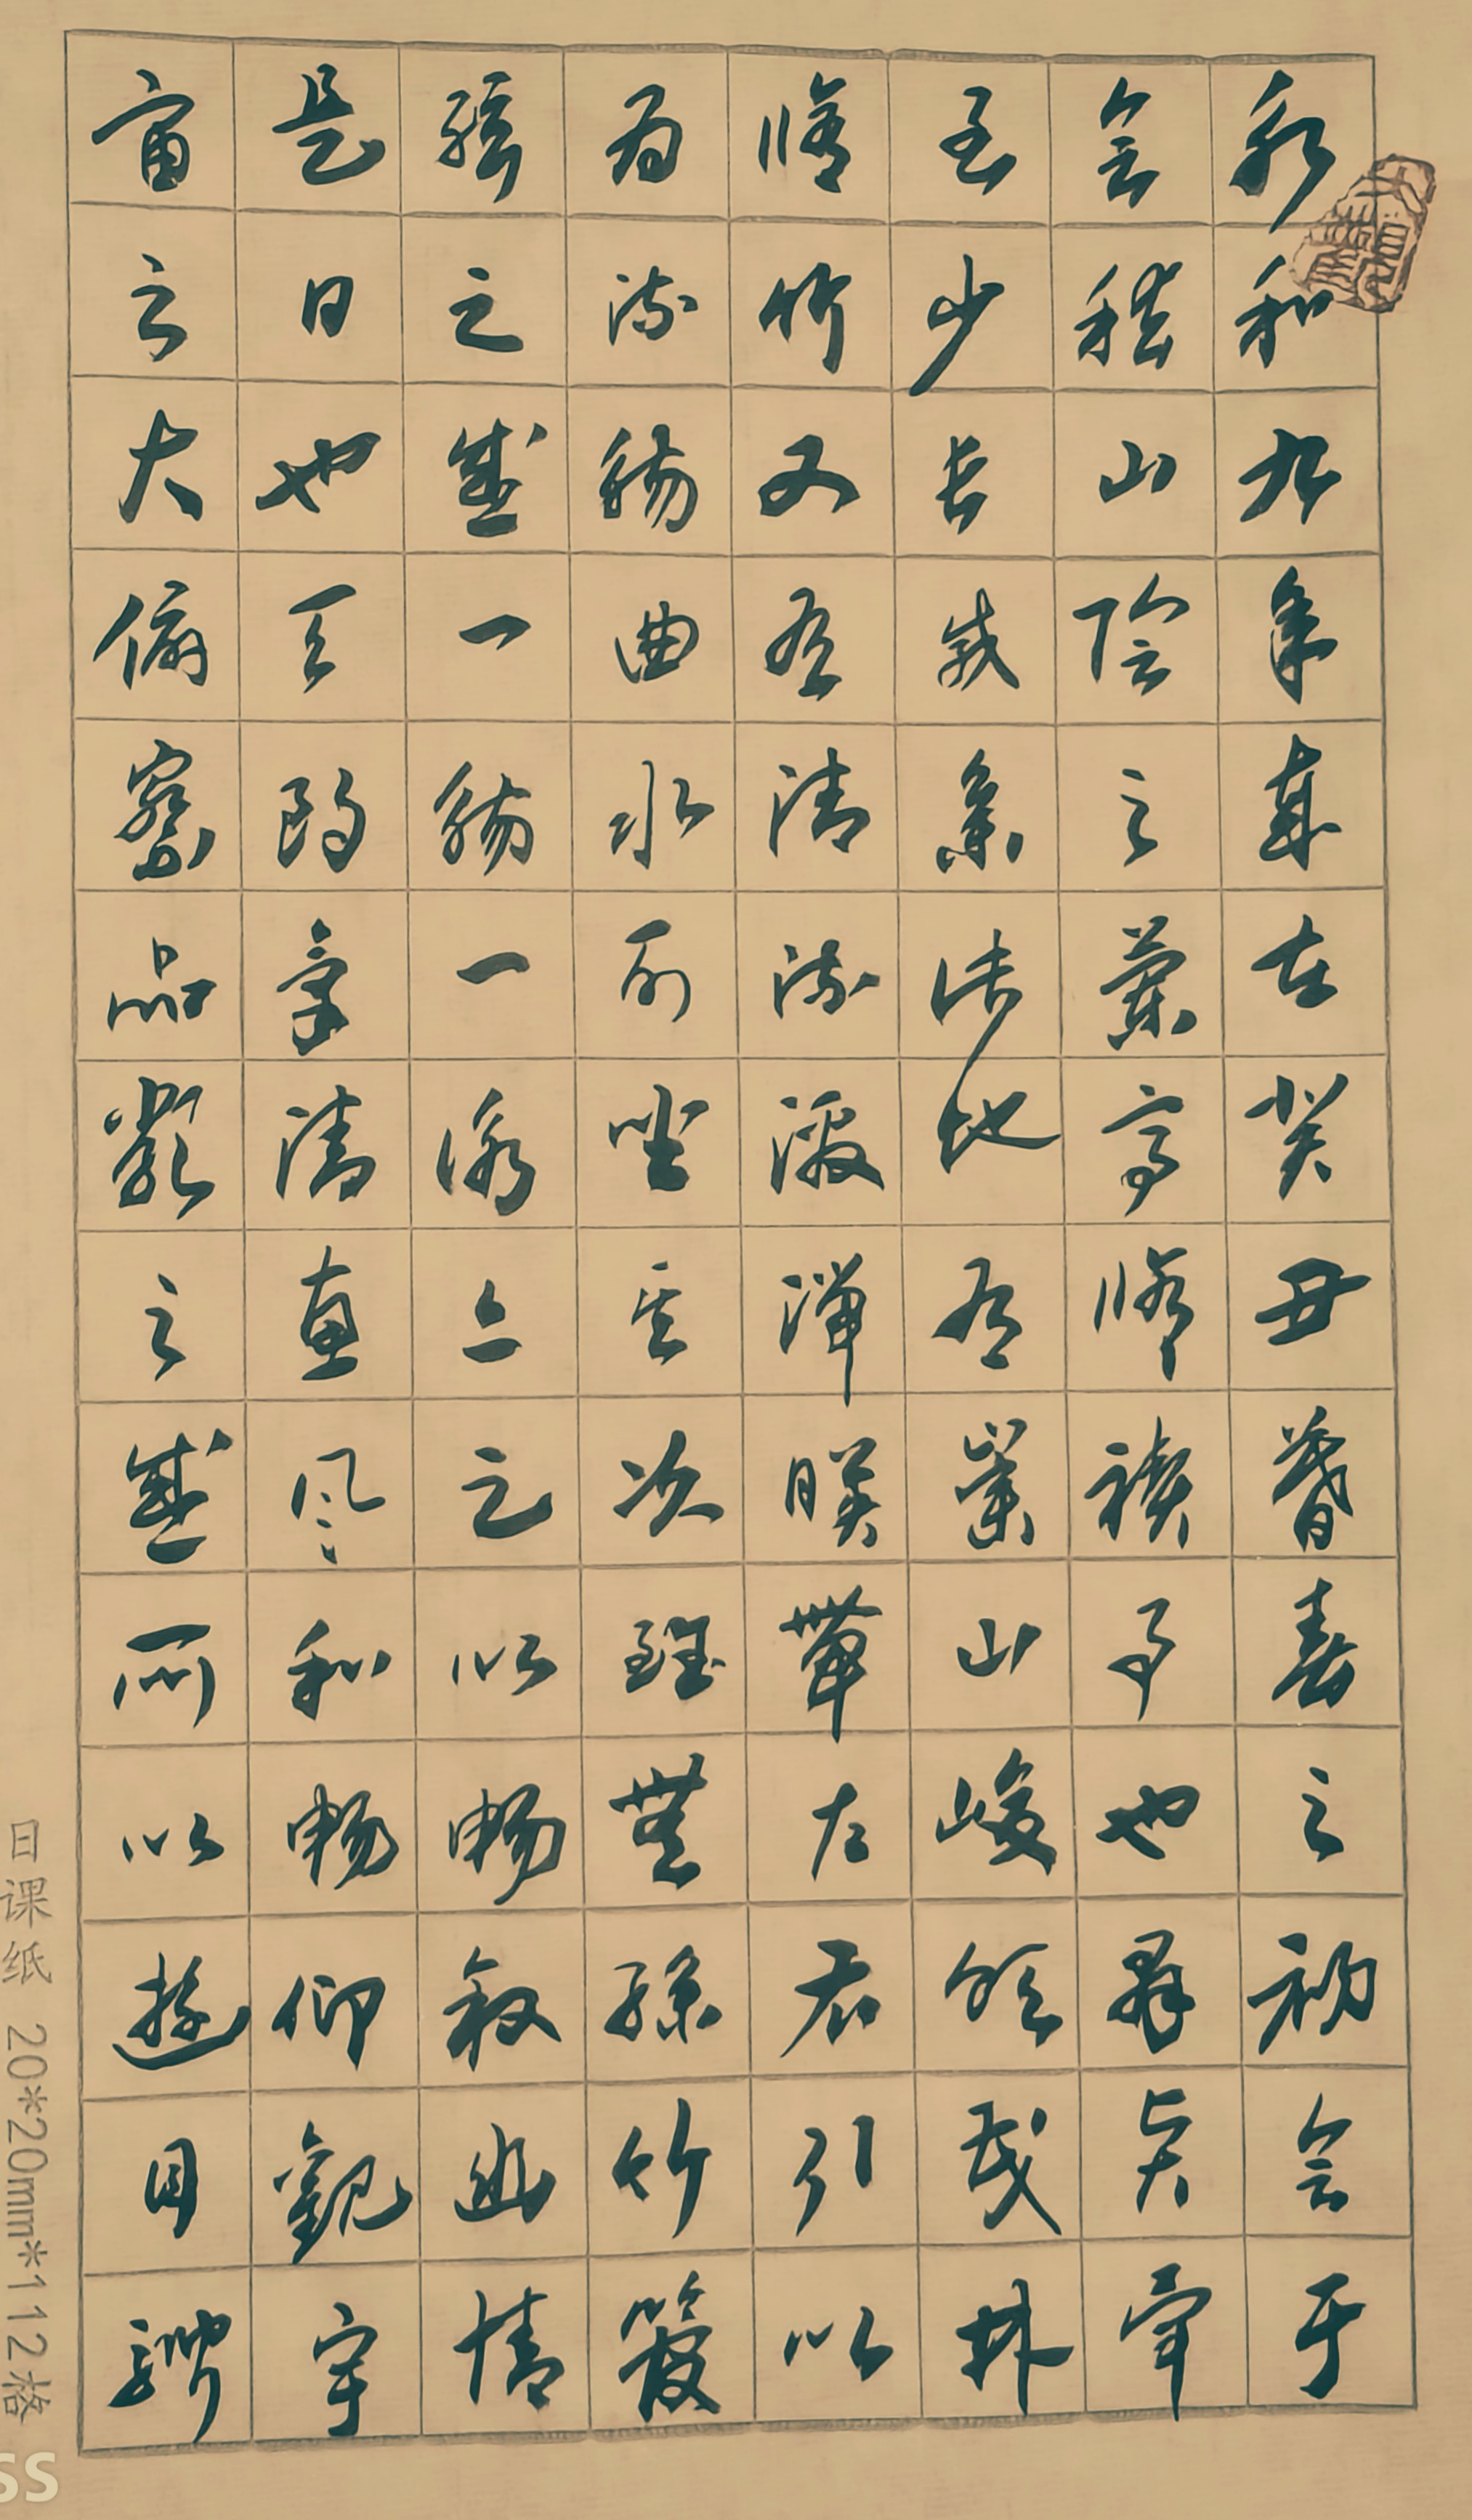 永和九年歲在癸丑暮春之初会于
会稽山陰之蘭亭脩禊事也群賢畢
至少長咸集此地有崇山峻領茂林
脩竹又有清流激湍暎帶左右引以
為流觴曲水列坐其次雖無絲竹管
弦之盛一觴一詠亦足以暢敘幽情
是日也天朗氣清惠風和暢仰觀宇
宙之大俯察品類之盛所以遊目騁
日课纸 20*20mm*112格
ss